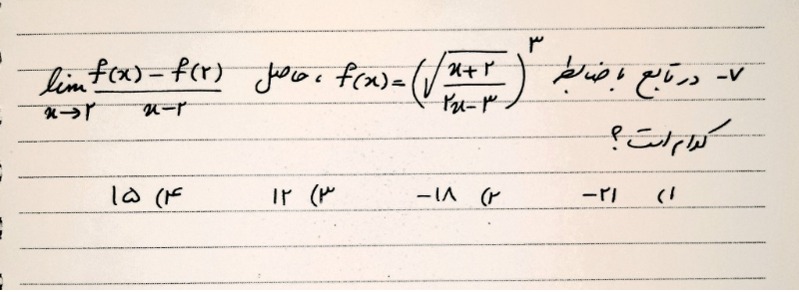 ۷- در تابع با ضابطه f(x)=(√((x+۲)/(۲x-۳)))^۳ ، حاصل lim x→۲ (f(x)-f(۲))/(x-۲)
کدام است؟
۱) -۲۱ ۲) -۱۸ ۳) ۱۲ ۴) ۱۵